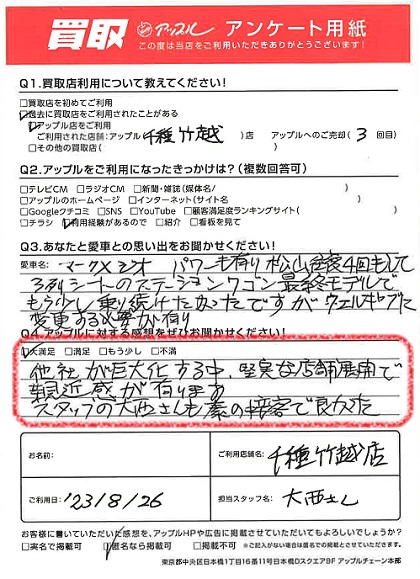 買取 アップル アンケート用紙
この度は当店をご利用いただきありがとうございます!
Q1.買取店利用について教えてください!
□買取店を初めてご利用
☑過去に買取店をご利用されたことがある
☑アップル店をご利用
ご利用された店舗:アップル 千種竹越 )店 アップルへのご売却( 3 回目)
□その他の買取店( )
Q2.アップルをご利用になったきっかけは?(複数回答可)
□テレビCM □ラジオCM □新聞・雑誌(媒体名/ )
□アップルのホームページ □インターネット(サイト名 )
□Googleクチコミ □SNS □YouTube □顧客満足度ランキングサイト( )
□チラシ ☑利用経験があるので □紹介 □看板を見て
Q3.あなたと愛車との思い出をお聞かせください!
愛車名: マークXジオ パワーも有り松山往復4回もして
3列シートのステーションワゴン最終モデルで
もう少し乗り続けたかったですがウェルキャブに
変更する必要が有り
Q4.アップルに対する感想をぜひお聞かせください!
☑大満足 □満足 □もう少し □不満
他社が巨大化する中、堅実な店舗展開で
親近感が有ります
スタッフの大西さんも素の接客で良かった
お名前:
ご利用店舗名: 千種竹越店
ご利用日: '23/8/26
担当スタッフ名: 大西さん
お客様に書いていただいた感想を、アップルHPや広告に掲載させていただいてもよろしいでしょうか?
□実名で掲載可 ☑匿名なら掲載可 □掲載不可 ※ご記入がない場合は匿名での掲載とさせていただきます。
東京都中央区日本橋1丁目16番11号日本橋Dスクエア8F アップルチェーン本部